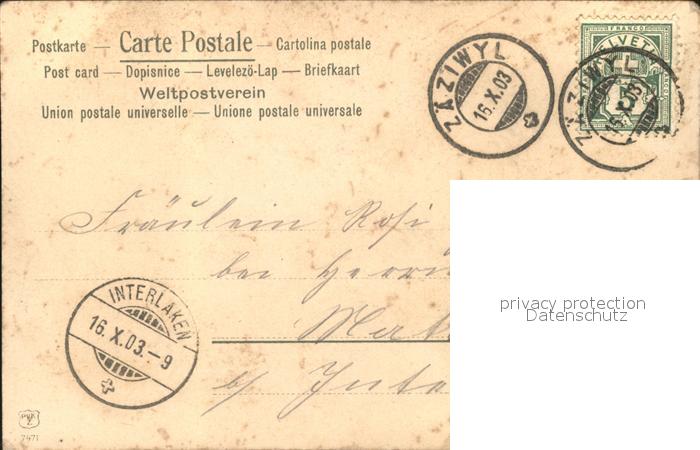 Postkarte — Carte Postale — Cartolina postale
Post card — Dopisnice — Levelező-Lap — Briefkaart
Weltpostverein
Union postale universelle — Unione postale universale
ZÄZIWYL
16.X.03
FRANCO
HELVETIA
ZÄZIWYL
16.X.03
Fräulein Rosi
bei Herrn
privacy protection
Datenschutz
INTERLAKEN
16.X.03.–9
Matt
b/ Inte
PVKZ
7471